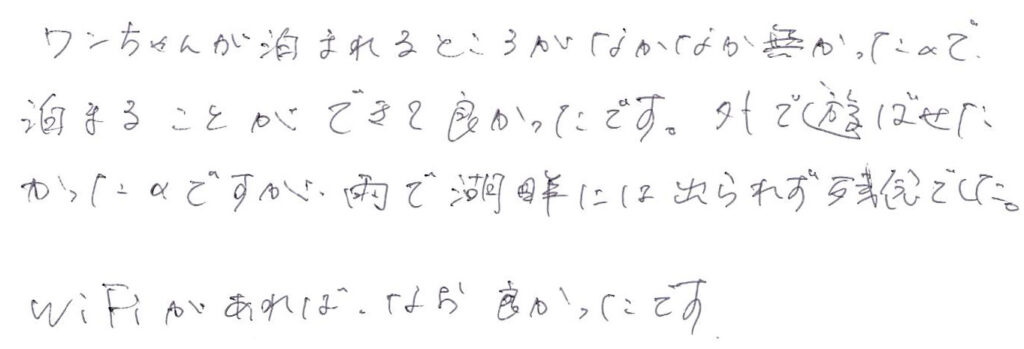 ワンちゃんが泊まれるところがなかなか無かったので
泊まることができて良かったです。外で遊ばせた
かったのですが、雨で湖畔には出られず残念でした。
WiFiがあれば、なお良かったです